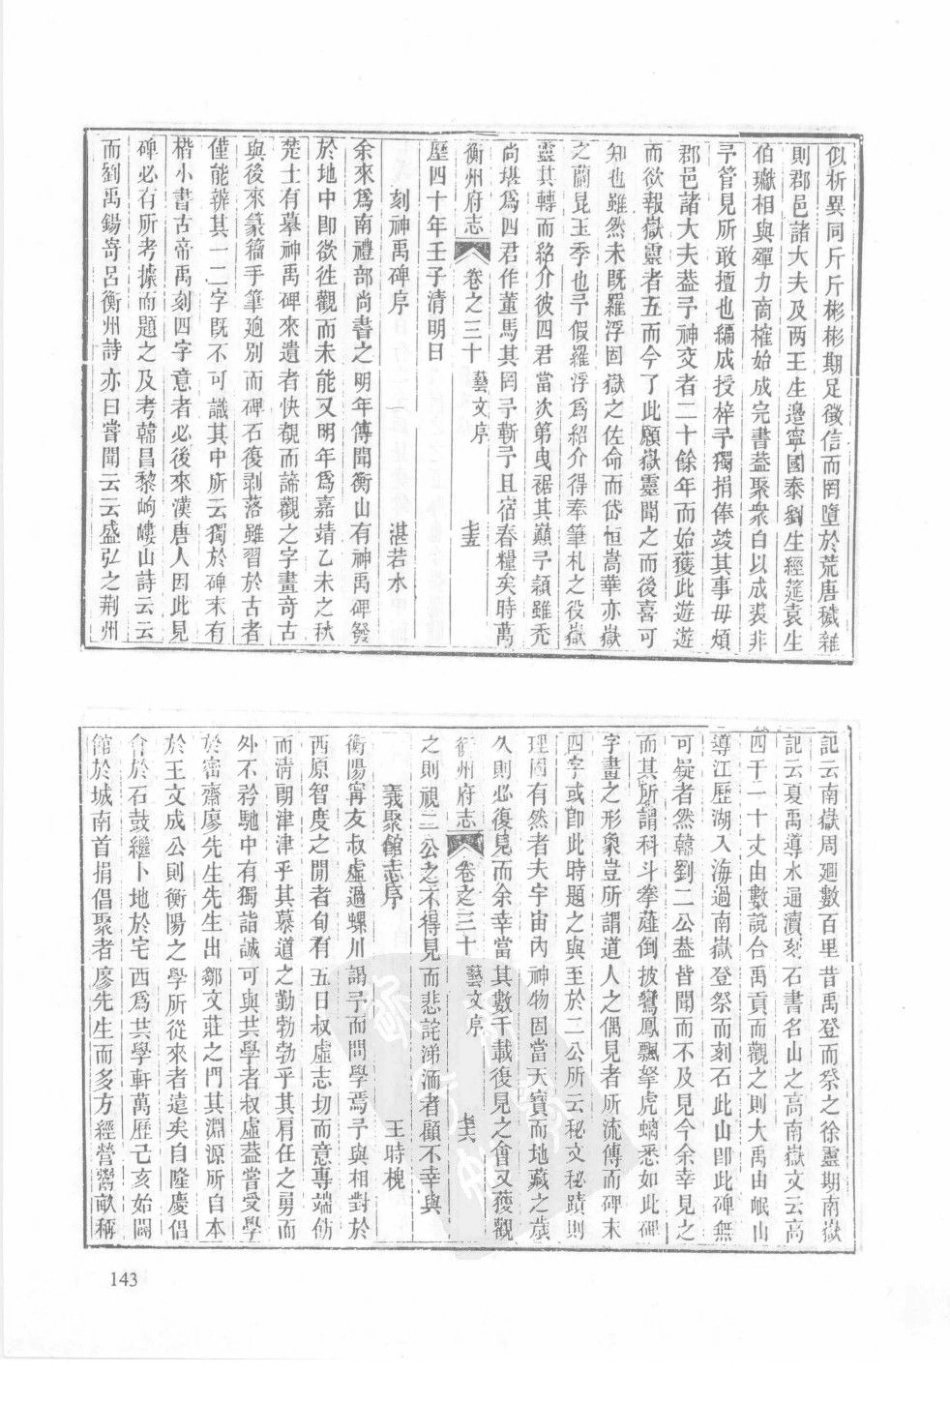 似析異同斤斤彬彬期足徵信而罔墮於荒唐穢雜
則郡邑諸大夫及两王生邊寧國泰劉生經筵袁生
伯瓛相與殫力商榷始成完書葢聚衆白以成裘非
予管見所敢擅也編成授梓予獨捐俸竣其事毋煩
郡邑諸大夫葢予神交者二十餘年而始獲此遊遊
而欲報嶽靈者五而今了此願嶽靈聞之而後喜可
知也雖然未旣羅浮固嶽之佐命而岱恒嵩華亦嶽
之蘭昆玉季也予假羅浮爲紹介得奉筆札之役嶽
靈其轉而紹介彼四君當次第曳裾其巔予穎雖禿
尚堪爲四君作董馬其罔予蘄予且宿舂糧矣時萬
衡州府志 卷之三十 藝文序 十五
歷四十年壬子清明日
刻神禹碑序 湛若水
余來爲南禮部尚書之明年傳聞衡山有神禹碑發
於地中卽欲徃觀而未能又明年爲嘉靖乙未之秋
楚士有摹神禹碑來遺者快覩而諦觀之字畫奇古
與後來篆籀手筆逈別而碑石復剥落雖習於古者
僅能辨其一二字旣不可識其中所云獨於碑末有
楷小書古帝禹刻四字意者必後來漢唐人因此見
碑必有所考據而題之及考韓昌黎岣嶁山詩云云
而劉禹錫寄呂衡州詩亦曰嘗聞云云盛弘之荆州
記云南嶽周廻數百里昔禹登而祭之徐靈期南嶽
記云夏禹導水通瀆刻石書名山之高南嶽文云高
四千二十丈由數說合禹貢而觀之則大禹由岷山
導江歷湖入海過南嶽登祭而刻石此山卽此碑無
可疑者然韓劉二公葢皆聞而不及見今余幸見之
而其所謂科斗拳薤倒披鸞鳳飄拏虎螭悉如此碑
字畫之形象豈所謂道人之偶見者所流傳而碑末
四字或卽此時題之與至於二公所云秘文秘蹟則
理固有然者夫宇宙內神物固當天寶而地藏之歲
久則必復見而余幸當其數千載復見之會又獲觀
衡州府志 卷之三十 藝文序 十六
之則視二公之不得見而悲詫涕洏者顧不幸與
義聚館志序 王時槐
衡陽甯友叔虛過螺川謁予而問學焉予與相對於
西原智度之閒者旬有五日叔虛志切而意專端俯
而淸朗津津乎其慕道之勤勃勃乎其肩任之勇而
外不矜馳中有獨詣誠可與共學者叔虛葢嘗受學
於密齋廖先生先生出鄒文莊之門其淵源所自本
於王文成公則衡陽之學所從來者遠矣自隆慶倡
會於石鼓繼卜地於宅西爲共學軒萬歷己亥始闢
館於城南首捐倡聚者廖先生而多方經營鬻畝稱
143